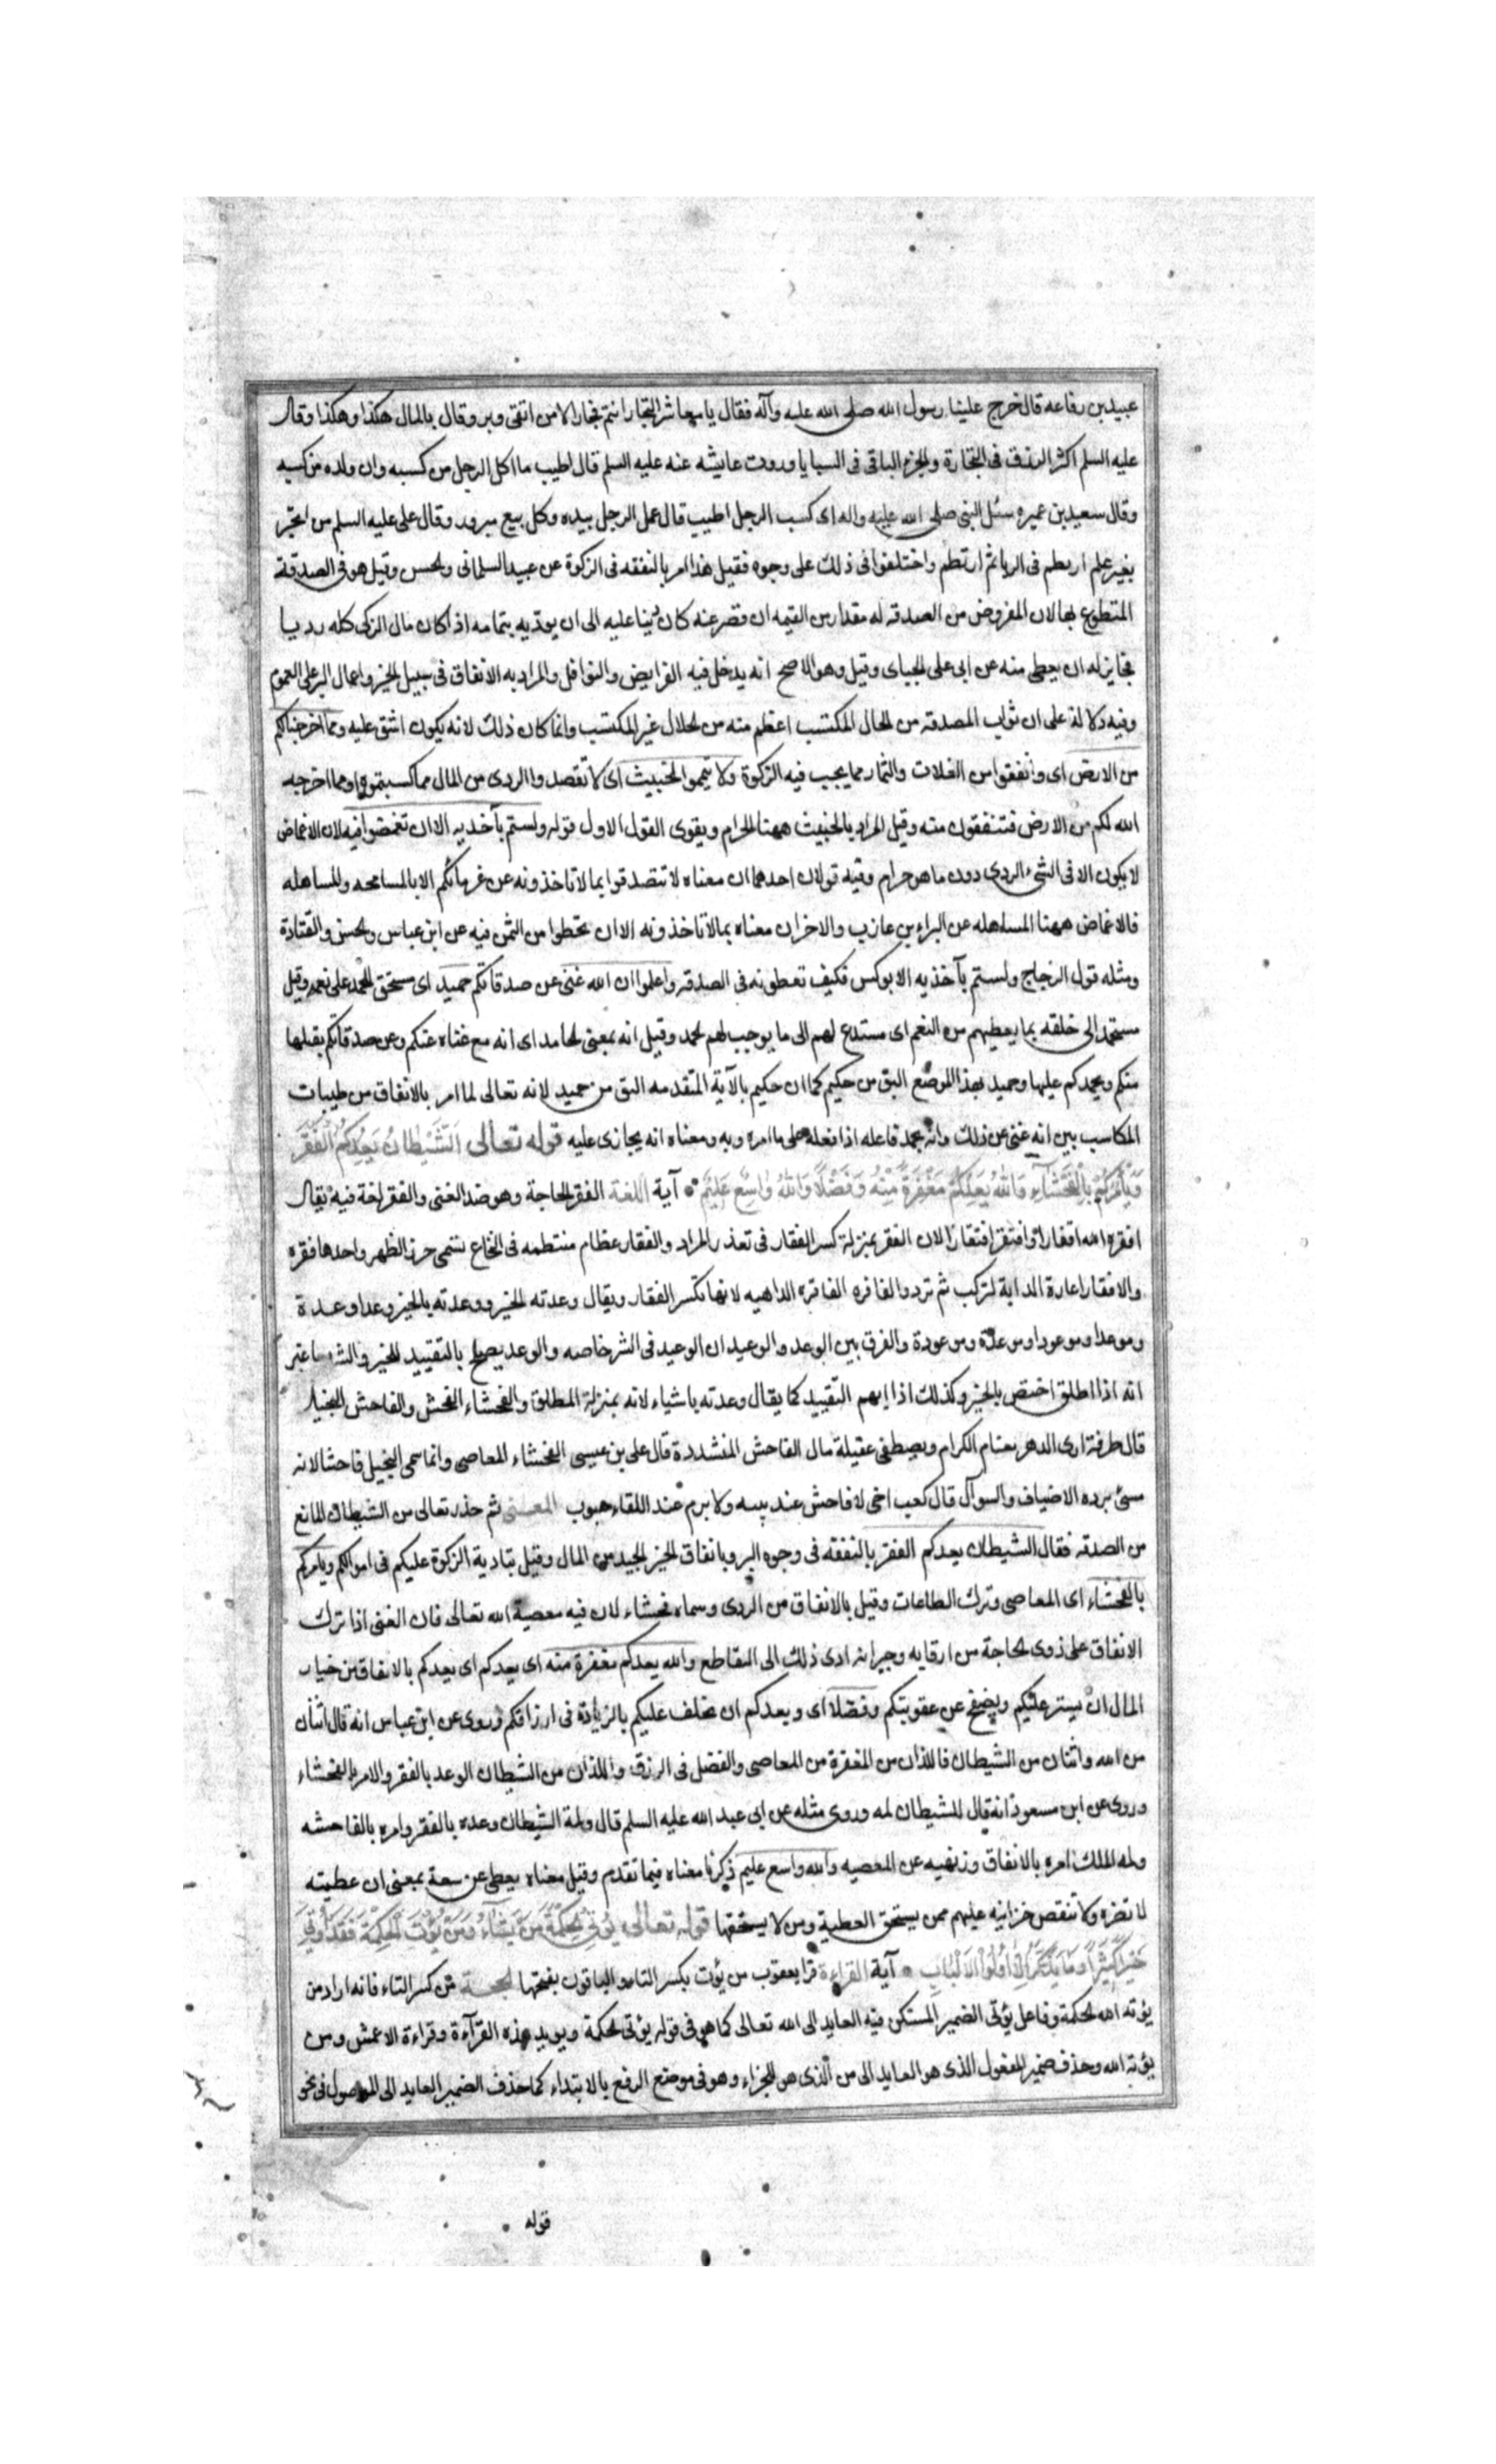 عبيد بن رفاعه قال خرج علينا رسول الله صلى الله عليه وآله فقال يا معاشر التجار انتم فجار الا من اتقى وبر وقال بالمال هكذا وهكذا وقال
عليه السلم اكثر الرزق فى التجارة والجزء الباقى فى السبايا وروت عايشه عنه عليه السلم قال اطيب ما اكل الرجل من كسبه وان ولده من كسبه
وقال سعيد بن عميره سئل النبى صلى الله عليه واله اى كسب الرجل اطيب قال عمل الرجل بيده وكل بيع مبرور وقال على عليه السلم من اتجر
بغير علم ارتطم فى الربا ثم ارتطم واختلفوا فى ذلك على وجوه فقيل هذا امر بالنفقه فى الزكوة عن عبيد السلمانى والحسن وقيل هو فى الصدقة
المتطوع بها لان المفروض من الصدقه له مقدار من القيمه ان قصر عنه كان دينا عليه الى ان يوديه بتمامه اذا كان مال المزكى كله رديا
فجايز له ان يعطى منه عن ابى على الجبياى وقيل وهو الاصح انه يدخل فيه الفرايض والنوافل والمراد به الانفاق فى سبيل الخير واعمال البر على العموم
وفيه دلالة على ان ثواب الصدقه من الحال المكتسب اعظم منه من الحلال غير المكتسب وانما كان ذلك لانه يكون اشق عليه ومما اخرجنا لكم
من الارض اى وانفقوا من الغلات والثمار مما يجب فيه الزكوة ولا تيمموا الخبيث اى لا تقصدوا الردى من المال مما كسبتموه او مما اخرجه
الله لكم من الارض فتنفقون منه وقيل المراد بالخبيث ههنا الحرام ويقوى القول الاول قوله ولستم بآخذيه الا ان تغمضوا فيه لان الاغماض
لا يكون الا فى الشىء الردى دون ما هو حرام وفيه قولان احدهما ان معناه لا تتصدقوا بما لا تاخذونه عن غرمائكم الا بالمسامحه والمساهله
فالاغماض ههنا المساهله عن البراء بن عازب والاخر ان معناه بما لا تاخذونه الا ان تحطوا من الثمن فيه عن ابن عباس والحسن والقتادة
ومثله قول الزجاج ولستم بآخذيه الا بوكس فكيف تعطونه فى الصدقه واعلموا ان الله غنى عن صدقاتكم حميد اى مستحق للحمد على نعمه وقيل
مستحمد الى خلقه بما يعطيهم من النعم اى مستدع لهم الى ما يوجب لهم الحمد وقيل انه بمعنى الحامد اى انه مع غناه عنكم وعن صدقاتكم يقبلها
منكم ويحمدكم عليها وحميد بهذا الموضع اليق من حكيم كما ان حكيم بالآية المتقدمه اليق من حميد لانه تعالى لما امر بالانفاق من طيبات
المكاسب بين انه غنى عن ذلك وانه يحمد فاعله اذا فعله على ما امره به ومعناه انه يجازى عليه قوله تعالى اَلشَّيْطانُ يَعِدُكُمُ الْفَقْرَ
وَيَأْمُرُكُمْ بِالْفَحْشاءِ وَاللهُ يَعِدُكُمْ مَغْفِرَةً مِنْهُ وَفَضْلًا وَاللهُ واسِعٌ عَليمٌ آية اللغة الفقر الحاجة وهو ضد الغنى والفقر لغة فيه يقال
افقره الله افقارا وافتقر افتقارا لان الفقر بمنزلة كسر الفقار فى تعذر المراد والفقار عظام منتطمه فى النخاع تسمى خرز الظهر واحدها فقره
والافقار اعارة الدابة لتركب ثم ترد والفاقره الداهيه لانها تكسر الفقار ويقال وعدته الخير ووعدته بالخير وعدا وعدة
وموعدا وموعودا وموعدة وموعودة والفرق بين الوعد والوعيد ان الوعيد فى الشر خاصه والوعد يصلح بالتقييد للخير والشر معا غير
انه اذا اطلق اختص بالخير وكذلك اذا ابهم التقييد كما يقال وعدته باشياء لانه بمنزلة المطلق والفحشاء الفحش والفاحش البخيل
قال طرفة ارى الدهر يعتام الكرام ويصطفى عقيلة مال الفاحش المتشددة قال على بن عيسى الفحشاء المعاصى وانما سمى البخيل فاحشا لانه
مسئ برده الاضياف والسوآل قال كعب اخى لا فاحش عند بيته ولا برم عند اللقاء هيوب المعنى ثم حذر تعالى من الشيطان المانع
من الصدقه فقال الشيطان يعدكم الفقر بالنفقه فى وجوه البر وبانفاق الخير الجيد من المال وقيل بتادية الزكوة عليكم فى اموالكم ويامركم
بالفحشاء اى المعاصى وترك الطاعات وقيل بالانفاق من الردى وسماه فحشاء لان فيه معصية الله تعالى فان الغنى اذا ترك
الانفاق على ذوى الحاجة من اقاربه وجيرانه ادى ذلك الى التقاطع والله يعدكم مغفرة منه اى يعدكم اى يعدكم بالانفاق من خيار
المال ان يستر عليكم ويصفح عن عقوبتكم وفضلا اى ويعدكم ان يخلف عليكم بالزيادة فى ارزاقكم وروى عن ابن عباس انه قال اثنان
من الله واثنان من الشيطان فاللذان من المغفرة من المعاصى والفضل فى الرزق واللذان من الشيطان الوعد بالفقر والامر بالفحشاء
وروى عن ابن مسعود انه قال للشيطان لمه وروى مثله عن ابى عبد الله عليه السلم قال ولمة الشيطان وعده بالفقر وامره بالفاحشه
ولمه الملك امره بالانفاق ونهيه عن المعصيه والله واسع عليم ذكرنا معناه فيما تقدم وقيل معناه يعطى عن سعة بمعنى ان عطيته
لا تضره ولا تنقص خزاينه عليهم ممن يستحق العطية ومن لا يستحقها قوله تعالى يُؤْتِى الْحِكْمَةَ مَنْ يَشاءُ وَمَنْ يُؤْتَ الْحِكْمَةَ فَقَدْ اُوتِىَ
خَيْرًا كَثيرًا وَما يَذَّكَّرُ اِلّا اُولُوا الْاَلْبابِ آية القراءة قرا يعقوب من يؤت بكسر التاء والباقون بفتحها الحجة من كسر التاء فانه اراد من
يؤته الله الحكمة وفاعل يؤتى الضمير المستكن فيه العايد الى الله تعالى كما هو فى قوله يؤتى الحكمة ويويد هذه القرآءة وقراءة الاعمش ومن
يؤته الله وحذف ضمير المفعول الذى هو العايد الى من الذى هو للجزاء وهو فى موضع الرفع بالابتداء كما حذف الضمير العايد الى الموصول فى نحو
قوله